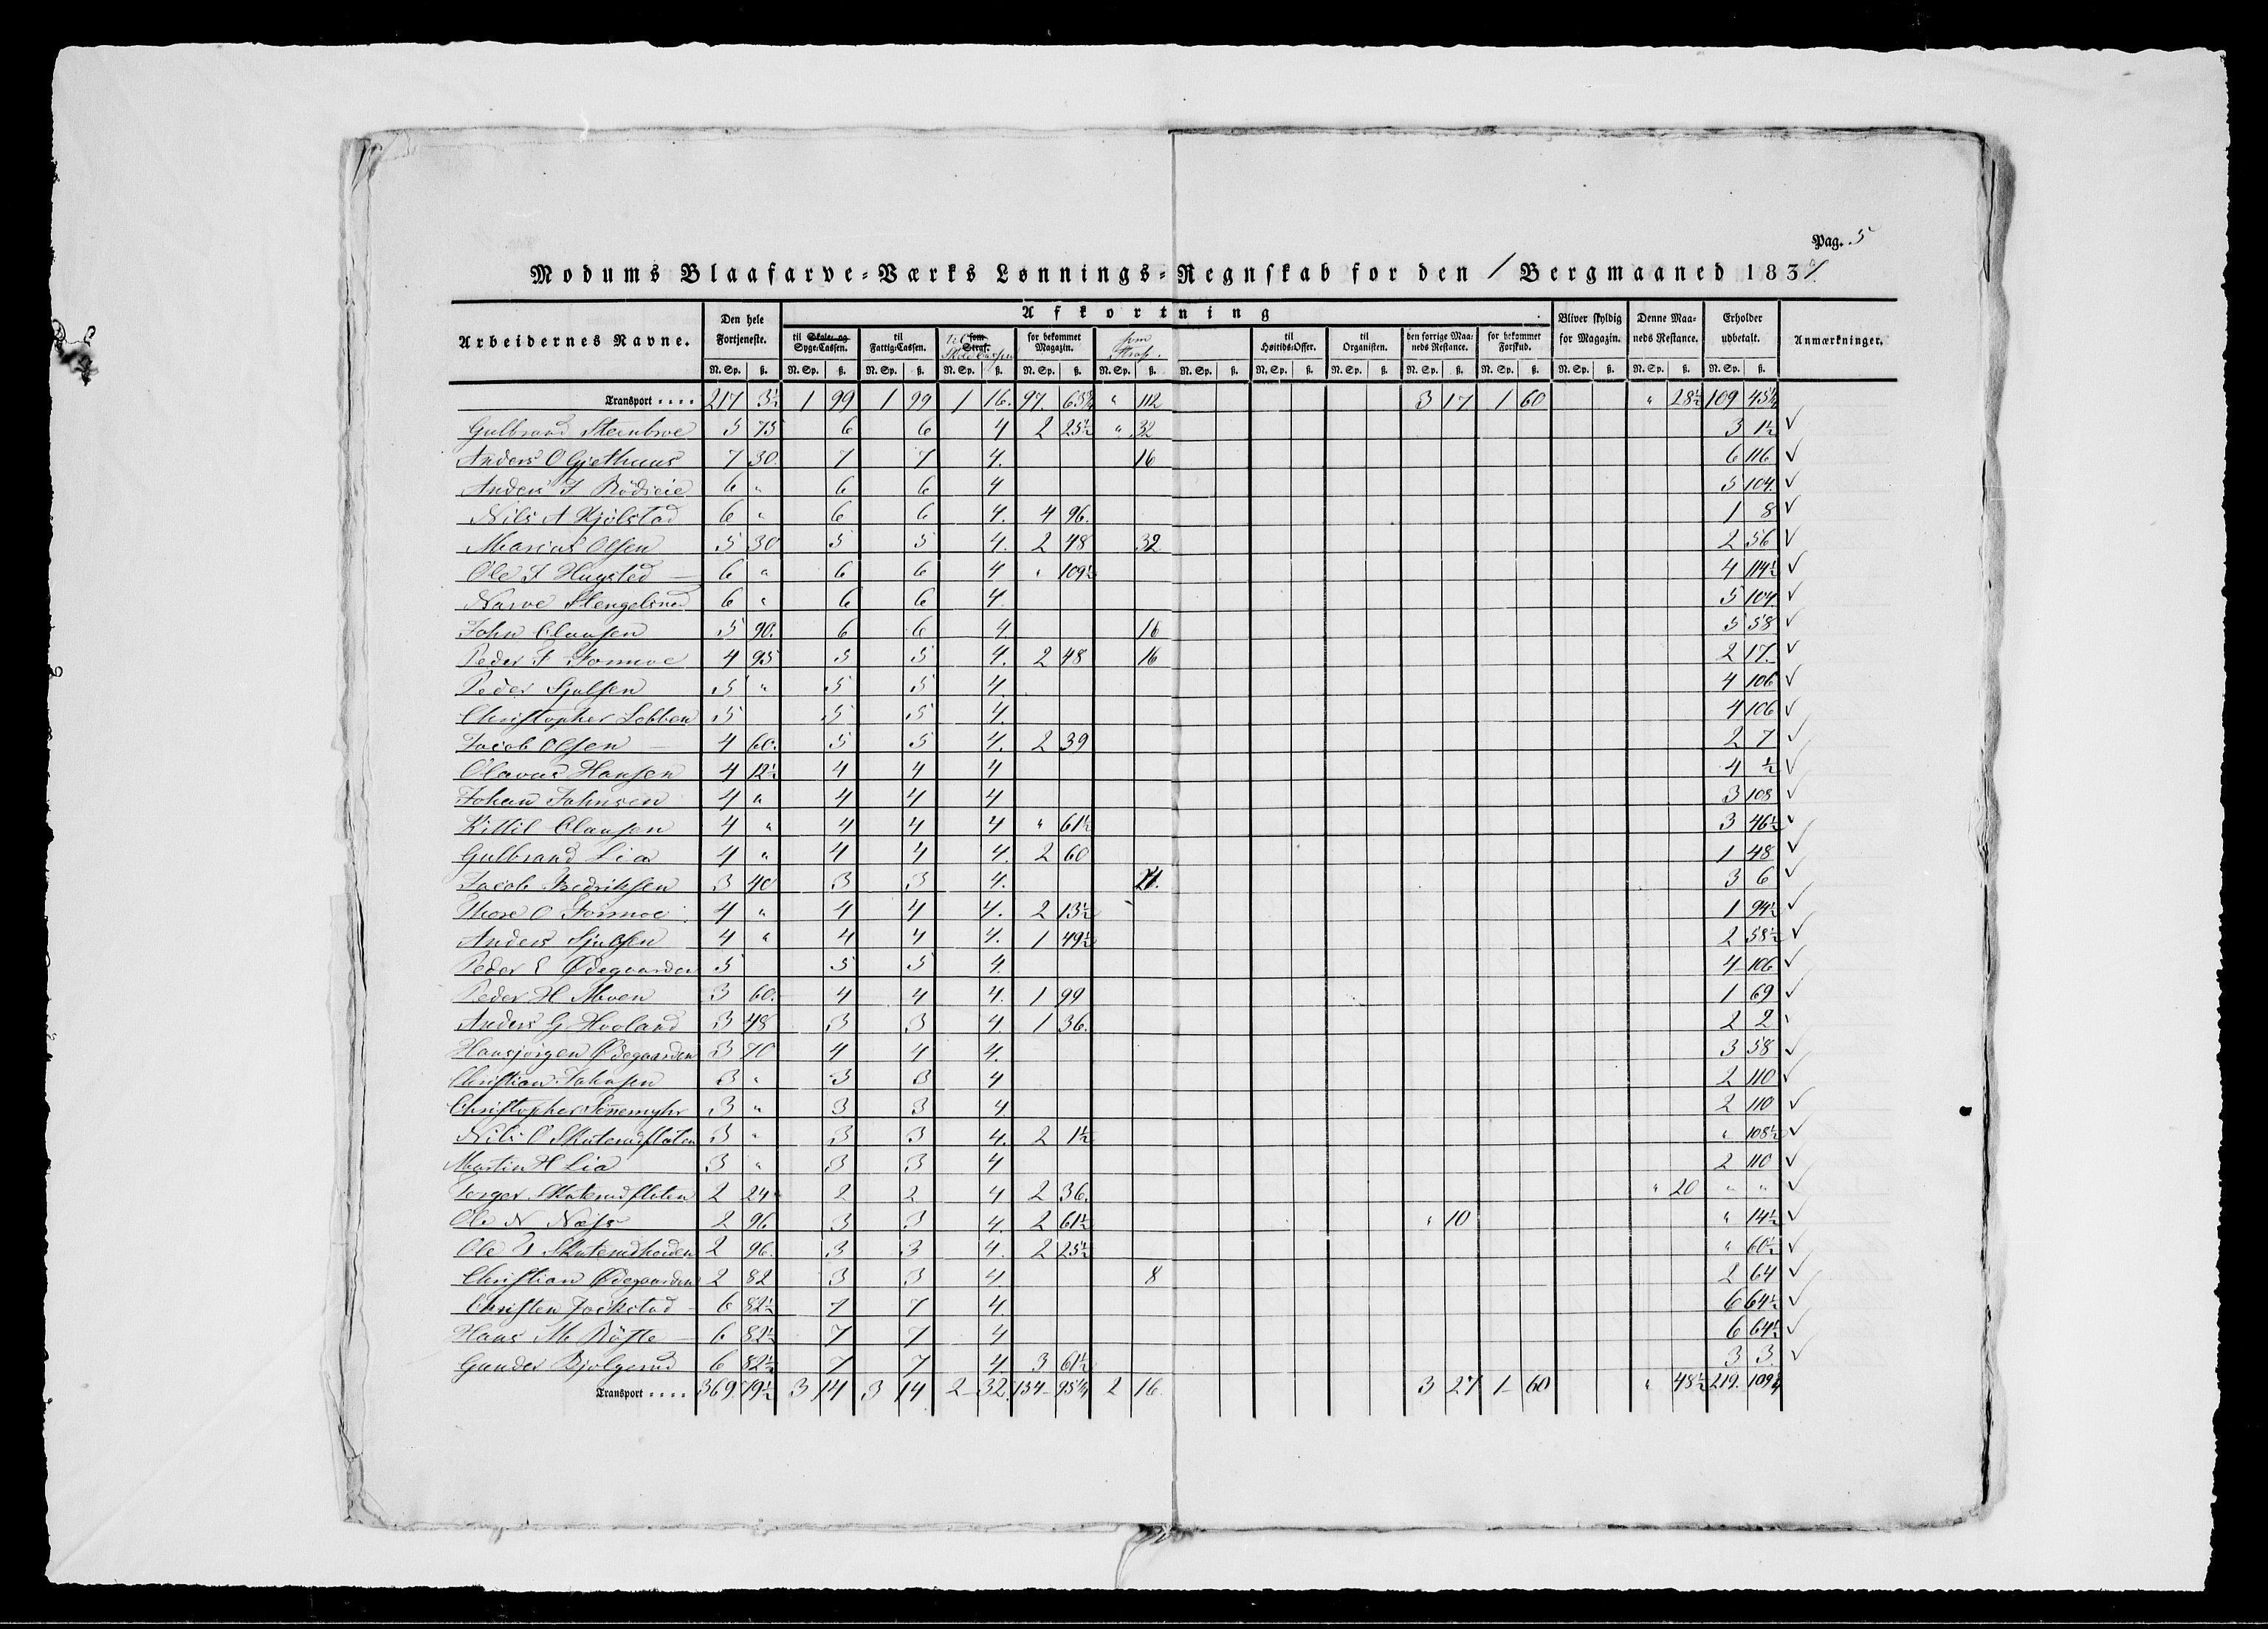 Pag. 5
Modums Blaafarve-Værks Lønnings-Regnskab for den 1 Bergmaaned 1837
Arbeidernes Navne. Den hele Fortjeneste. Afkortning Bliver skyldig for Magazin. Denne Maaneds Restance. Erholder udbetalt. Anmærkninger.
til Skole- og Syge-Cassen. til Fattig-Cassen. til som Straf. Skole Cassen for bekommet Magazin. som Straf. til Høitids-Offer. til Organisten. den forrige Maaneds Restance. for bekommet Forskud.
N. Sp. ß. N. Sp. ß. N. Sp. ß. N. Sp. ß. N. Sp. ß. N. Sp. ß. N. Sp. ß. N. Sp. ß. N. Sp. ß. N. Sp. ß. N. Sp. ß. N. Sp. ß. N. Sp. ß. N. Sp. ß.
Transport .... 217 3½ 1 99 1 99 1 16. 97. 63¾ " 112 3 17 1 60 " 28½ 109 45¼
Gulbrand Steenbroe 5 75 6 6 4 2 25½ " 32 3 1½ ✓
Anders O Gjethuus 7 30. 7 7 4. 16 6 116 ✓
Anders J Rödseie 6 " 6 6 4 5 104. ✓
Nils A Kjölstad 6 " 6 6 4. 4 96. 1 8 ✓
Marius Olsen 5 30 5 5 4. 2 48 32 2 56 ✓
Ole J Hugsted 6 " 6 6 4 " 109½ 4 114½ ✓
Narve Stengelsrud 6 " 6 6 4. 5 104. ✓
John Clausen 5 90. 6 6 4 16 5 58 ✓
Peder F Formoe 4 95 5 5 4. 2 48 16 2 17. ✓
Peder Sjulsen 5 " 5 5 4. 4 106 ✓
Christopher Lobben 5 5 5 4. 4 106 ✓
Jacob Olsen 4 60. 5 5 4. 2 39 2 7 ✓
Olavus Hansen 4 12½ 4 4 4 4 ½ ✓
Johan Johnsen 4 " 4 4 4 3 108 ✓
Kittil Clausen 4 " 4 4 4 " 61½ 3 46½ ✓
Gulbrand Lia 4 " 4 4 4. 2 60 1 48 ✓
Jacob Fredriksen 3 40 3 3 4. 24. 3 6 ✓
Thore O Formoe 4 " 4 4 4. 2 13½ 1 94½ ✓
Anders Sjulsen 4 " 4 4 4. 1 49½ 2 58½ ✓
Peder E Ødegaarden 5 5 5 4. 4 106 ✓
Peder H Moen 3 60. 4 4 4. 1 99 1 69 ✓
Anders G Hovland 3 48 3 3 4. 1 36. 2 2
Hansjörgen Ødegaarden 3 70 4 4 4. 3 58 ✓
Christian Johnsen 3 " 3 3 4 2 110 ✓
Christopher Sinnemyhr 3 " 3 3 4 2 110 ✓
Nils O Skuterudfloten 3 " 3 3 4. 2 1½ " 108½ ✓
Martin H Lia 3 " 3 3 4 2 110 ✓
Torger Skuterudfloten 2 24 2 2 4 2 36. " 20 " " ✓
Ole N Næss 2 96 3 3 4. 2 61½ " 10 " 14½ ✓
Ole Skuterudheiden 2 96. 3 3 4. 2 25½ " 60½ ✓
Christian Ødegaarden 2 82 3 3 4 8 2 64 ✓
Christen Fockstad 6 82½ 7 7 4 6 64½ ✓
Hans M Röste 6 82½ 7 7 4 6 64½ ✓
Gunder Bjölgerud 6 82½ 7 7 4 3 61½ 3 3. ✓
Transport .... 369. 19½ 3 14 3 14 2 32. 134 95¼ 2 16 3 27 1 60 " 48½ 219. 109¾